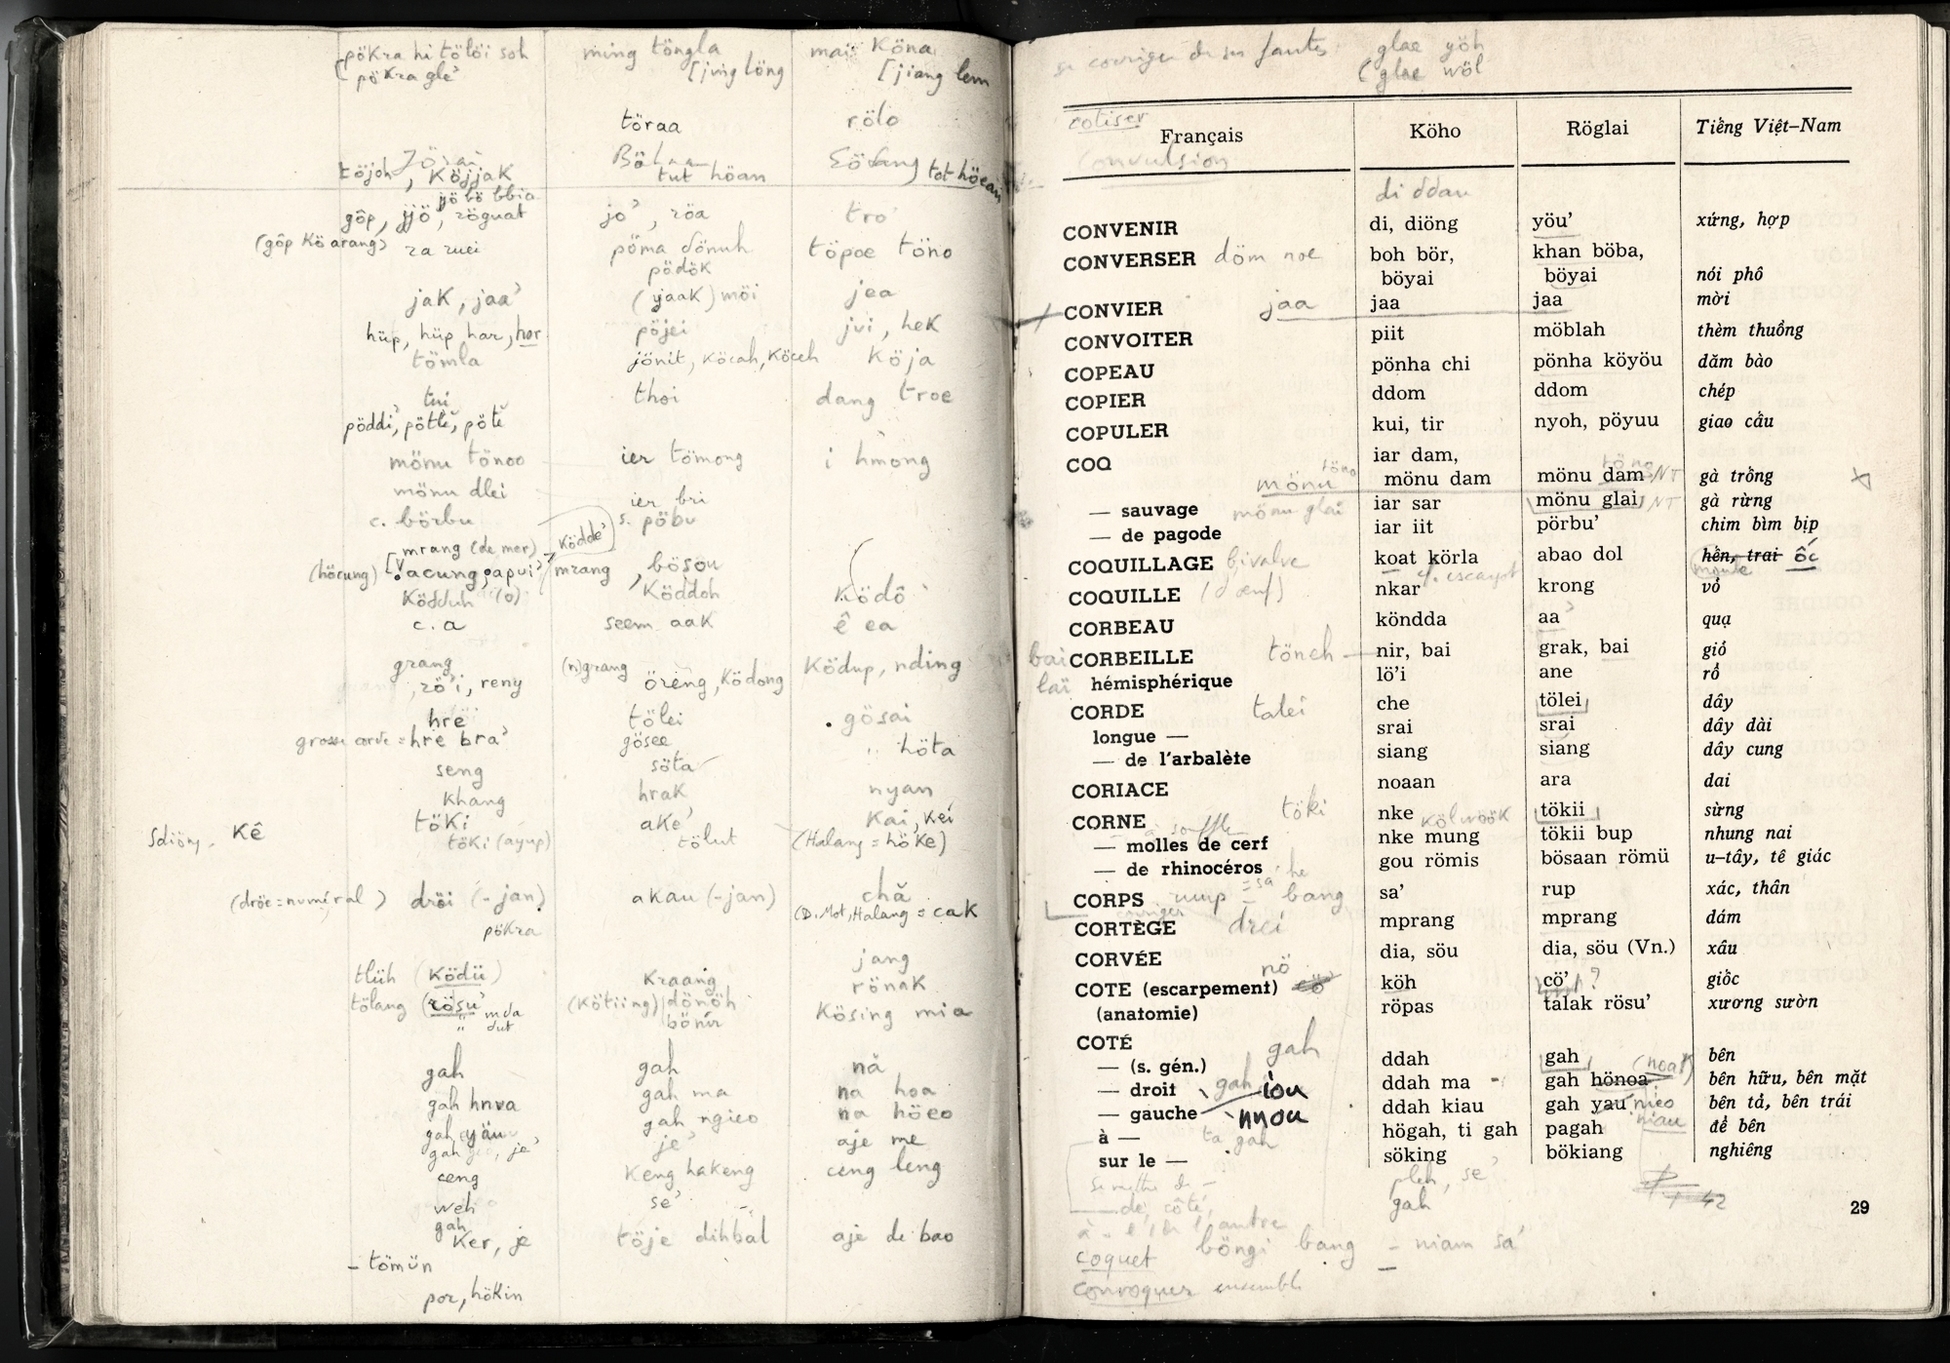 pökra hi tölöi soh ming töngla mai köna
[pökra gle' [jung löng [jiang lem
töraa rölo
Jörai Böhnar Södang
töjoh, köjjak tut höan tot höeai
göp, jjö, röguat jo', röa tro'
(göp kö arang) ra ruei pöma dönuh töpoe töno
pödök
jak, jaa' (jaak) möi jea
hüp, hüp har, hor pöjei jui, hek
tömla jönit, köcah, köceh köja
tui thoi dang troe
pöddi', pöttĕ, pötĕ
mönu tönoo ier tömong i hmong
mönu dlei ier bri
c. börbu s. pöbu
mrang (de mer) ködde'
(höcung) acung, apui mrang, bösou
ködduh (o) köddoh ködô
c. a seem aak ê ea
grang (n)grang ködup, nding
rö'i, reny öreng, ködong
hrĕ tölei gösai
grosse corde = hre bra' gösee " höta
seng söta
khang hrak nyan
töki ake' kai, kei
Sdiöng, kê töki (ayup) tölut (Halang = höke)
(dröe = numéral) dröi (-jan) akau (-jan) chă
pökra (D. Mot, Halang = cak
tlüh (ködü) kraang jang
tölang (rösu' (kötiing) dönöh rönak
" mda dut bönir kösing mia
gah gah nă
gah hnua gah ma na hoa
gah yău gah ngieo na höeo
gah, je' je' aje me
ceng keng hakeng ceng leng
weh se'
gah
ker, je töje dihbal aje de bao
- tömün
por, hökin
se corriger de ses fautes glae yöh
(glae wöl
cotiser
Français Köho Röglai Tiếng Việt-Nam
Convulsion
di ddau
CONVENIR di, diöng yöu' xứng, hợp
CONVERSER döm noe boh bör, khan böba,
böyai böyai nói phô
CONVIER jaa jaa jaa mời
CONVOITER piit möblah thèm thuồng
COPEAU pönha chi pönha köyöu dăm bào
COPIER ddom ddom chép
COPULER kui, tir nyoh, pöyuu giao cấu
COQ iar dam,
mönu töno mönu dam mönu dam töno NT gà trống
— sauvage mönu glai iar sar mönu glai NT gà rừng
— de pagode iar iit pörbu' chim bìm bịp
COQUILLAGE bivalve koat körla abao dol hến, trai ốc
moule
COQUILLE (d'œuf) nkar krong vỏ
CORBEAU köndda aa' quạ
bai CORBEILLE töneh nir, bai grak, bai giỏ
laï hémisphérique lö'i ane rổ
CORDE talei che tölei dây
longue — srai srai dây dài
— de l'arbalète siang siang dây cung
CORIACE noaan ara dai
CORNE töki nke kölwöök tökii sừng
à souffler
— molles de cerf nke mung tökii bup nhung nai
— de rhinocéros gou römis bösaan römü u-tây, tê giác
CORPS rup = sa' bang sa' rup xác, thân
CORTÈGE drei mprang mprang dám
CORVÉE dia, söu dia, söu (Vn.) xâu
COTE (escarpement) nö köh cö' ? giốc
(anatomie) röpas talak rösu' xương sườn
COTÉ gah
— (s. gén.) ddah gah bên
— droit gah iou ddah ma gah hönoa (noat) bên hữu, bên mặt
— gauche nnou ddah kiau gah yau nieo bên tả, bên trái
à — ta gah högah, ti gah pagah niau để bên
sur le — söking bökiang nghiêng
se mettre de — pleh, se'
— de côté, gah
29
à — l'autre
coquet böngi bang - niam sa'
convoquer ensemble